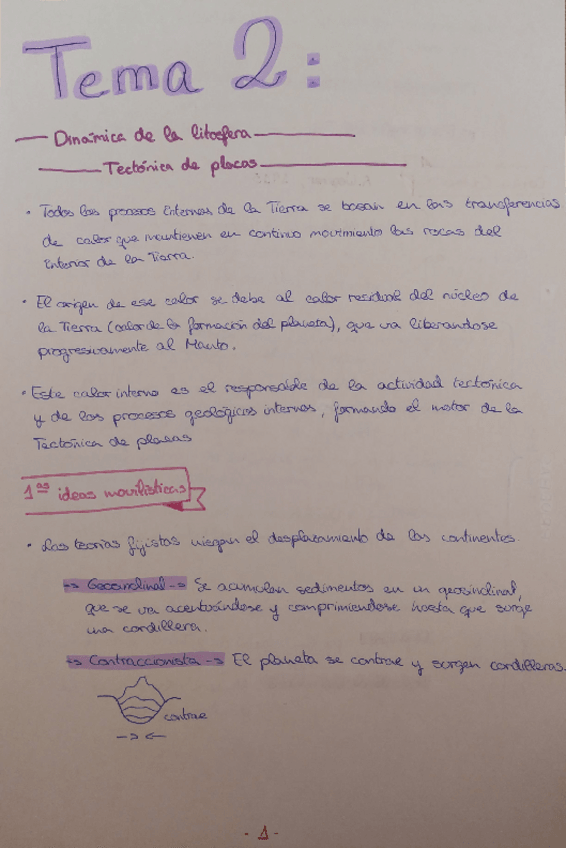 Tema 2:
Dinámica de la litosfera
Tectónica de placas
• Todos los procesos internos de la Tierra se basan en las transferencias
de calor que mantienen en continuo movimiento las rocas del
interior de la Tierra.
• El origen de ese calor se debe al calor residual del núcleo de
la Tierra (calor de la formación del planeta), que va liberandose
progresivamente al Manto.
• Este calor interno es el responsable de la actividad tectónica
y de los procesos geológicos internos, formando el motor de la
Tectónica de placas
1as ideas movilísticas
• Las teorías fijistas niegan el desplazamiento de los continentes.
→ Geosinclinal → Se acumulan sedimentos en un geosinclinal,
que se va acentuándose y comprimiendose hasta que surge
una cordillera.
→ Contraccionista → El planeta se contrae y surgen cordilleras.
contrae
→ ←
- 1 -